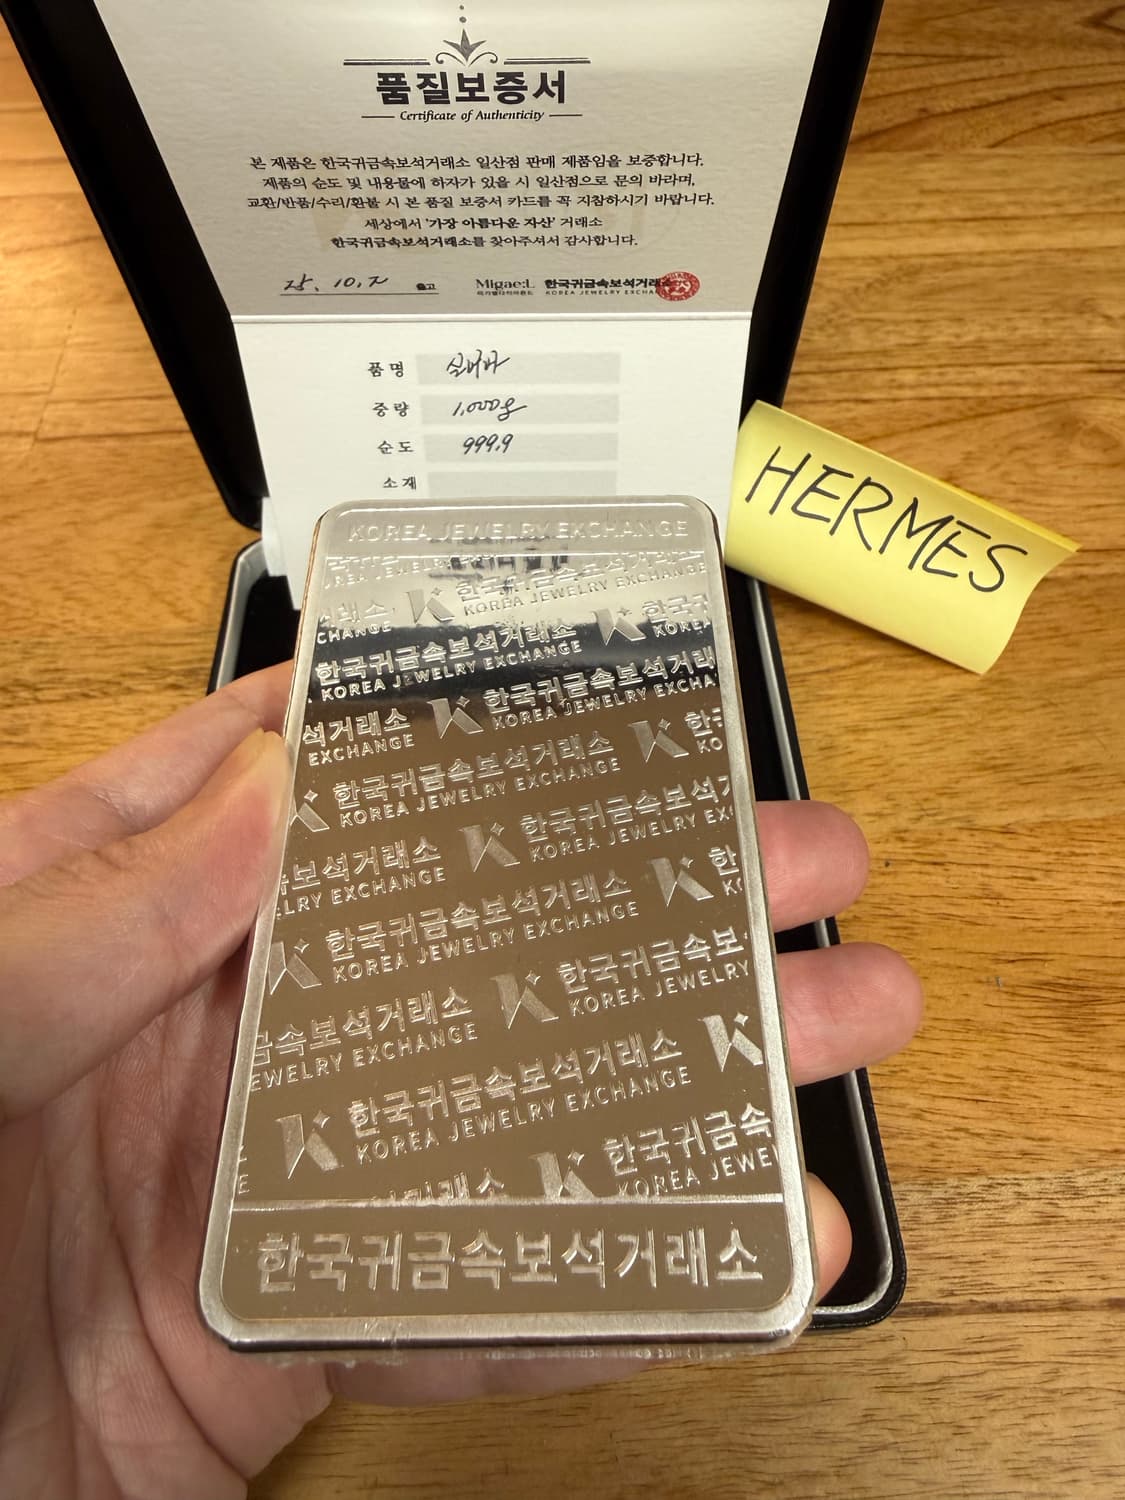 품질보증서
Certificate of Authenticity
본 제품은 한국귀금속보석거래소 일산점 판매 제품임을 보증합니다.
제품의 순도 및 내용물에 하자가 있을 시 일산점으로 문의 바라며,
교환/반품/수리/환불 시 본 품질 보증서 카드를 꼭 지참하시기 바랍니다.
세상에서 '가장 아름다운 자산' 거래소
한국귀금속보석거래소를 찾아주셔서 감사합니다.
25. 10. 2 출고
Migae:L 한국귀금속보석거래소
미가엘다이아몬드 KOREA JEWELRY EXCHAN
품명 실버바
중량 1,000g
순도 999.9
소재
HERMES
KOREA JEWELRY EXCHANGE
OREA JEWELRY
거래소 K 한국귀금속보석거래소
CHANGE KOREA JEWELRY EXCHANGE
한국귀금속보석거래소 K 한국귀
KOREA JEWELRY EXCHANGE KOREA
석거래소 K 한국귀금속보석거래
EXCHANGE KOREA JEWELRY EXCHA
K 한국귀금속보석거래소 K 한국
KOREA JEWELRY EXCHANGE KO
속보석거래소 K 한국귀금속보석거
ELRY EXCHANGE KOREA JEWELRY EX
K 한국귀금속보석거래소 K 한
KOREA JEWELRY EXCHANGE K
금속보석거래소 K 한국귀금속보
EWELRY EXCHANGE KOREA JEWELRY
K 한국귀금속보석거래소 K
KOREA JEWELRY EXCHANGE
K 한국귀금속
E KOREA JEWE
한국귀금속보석거래소